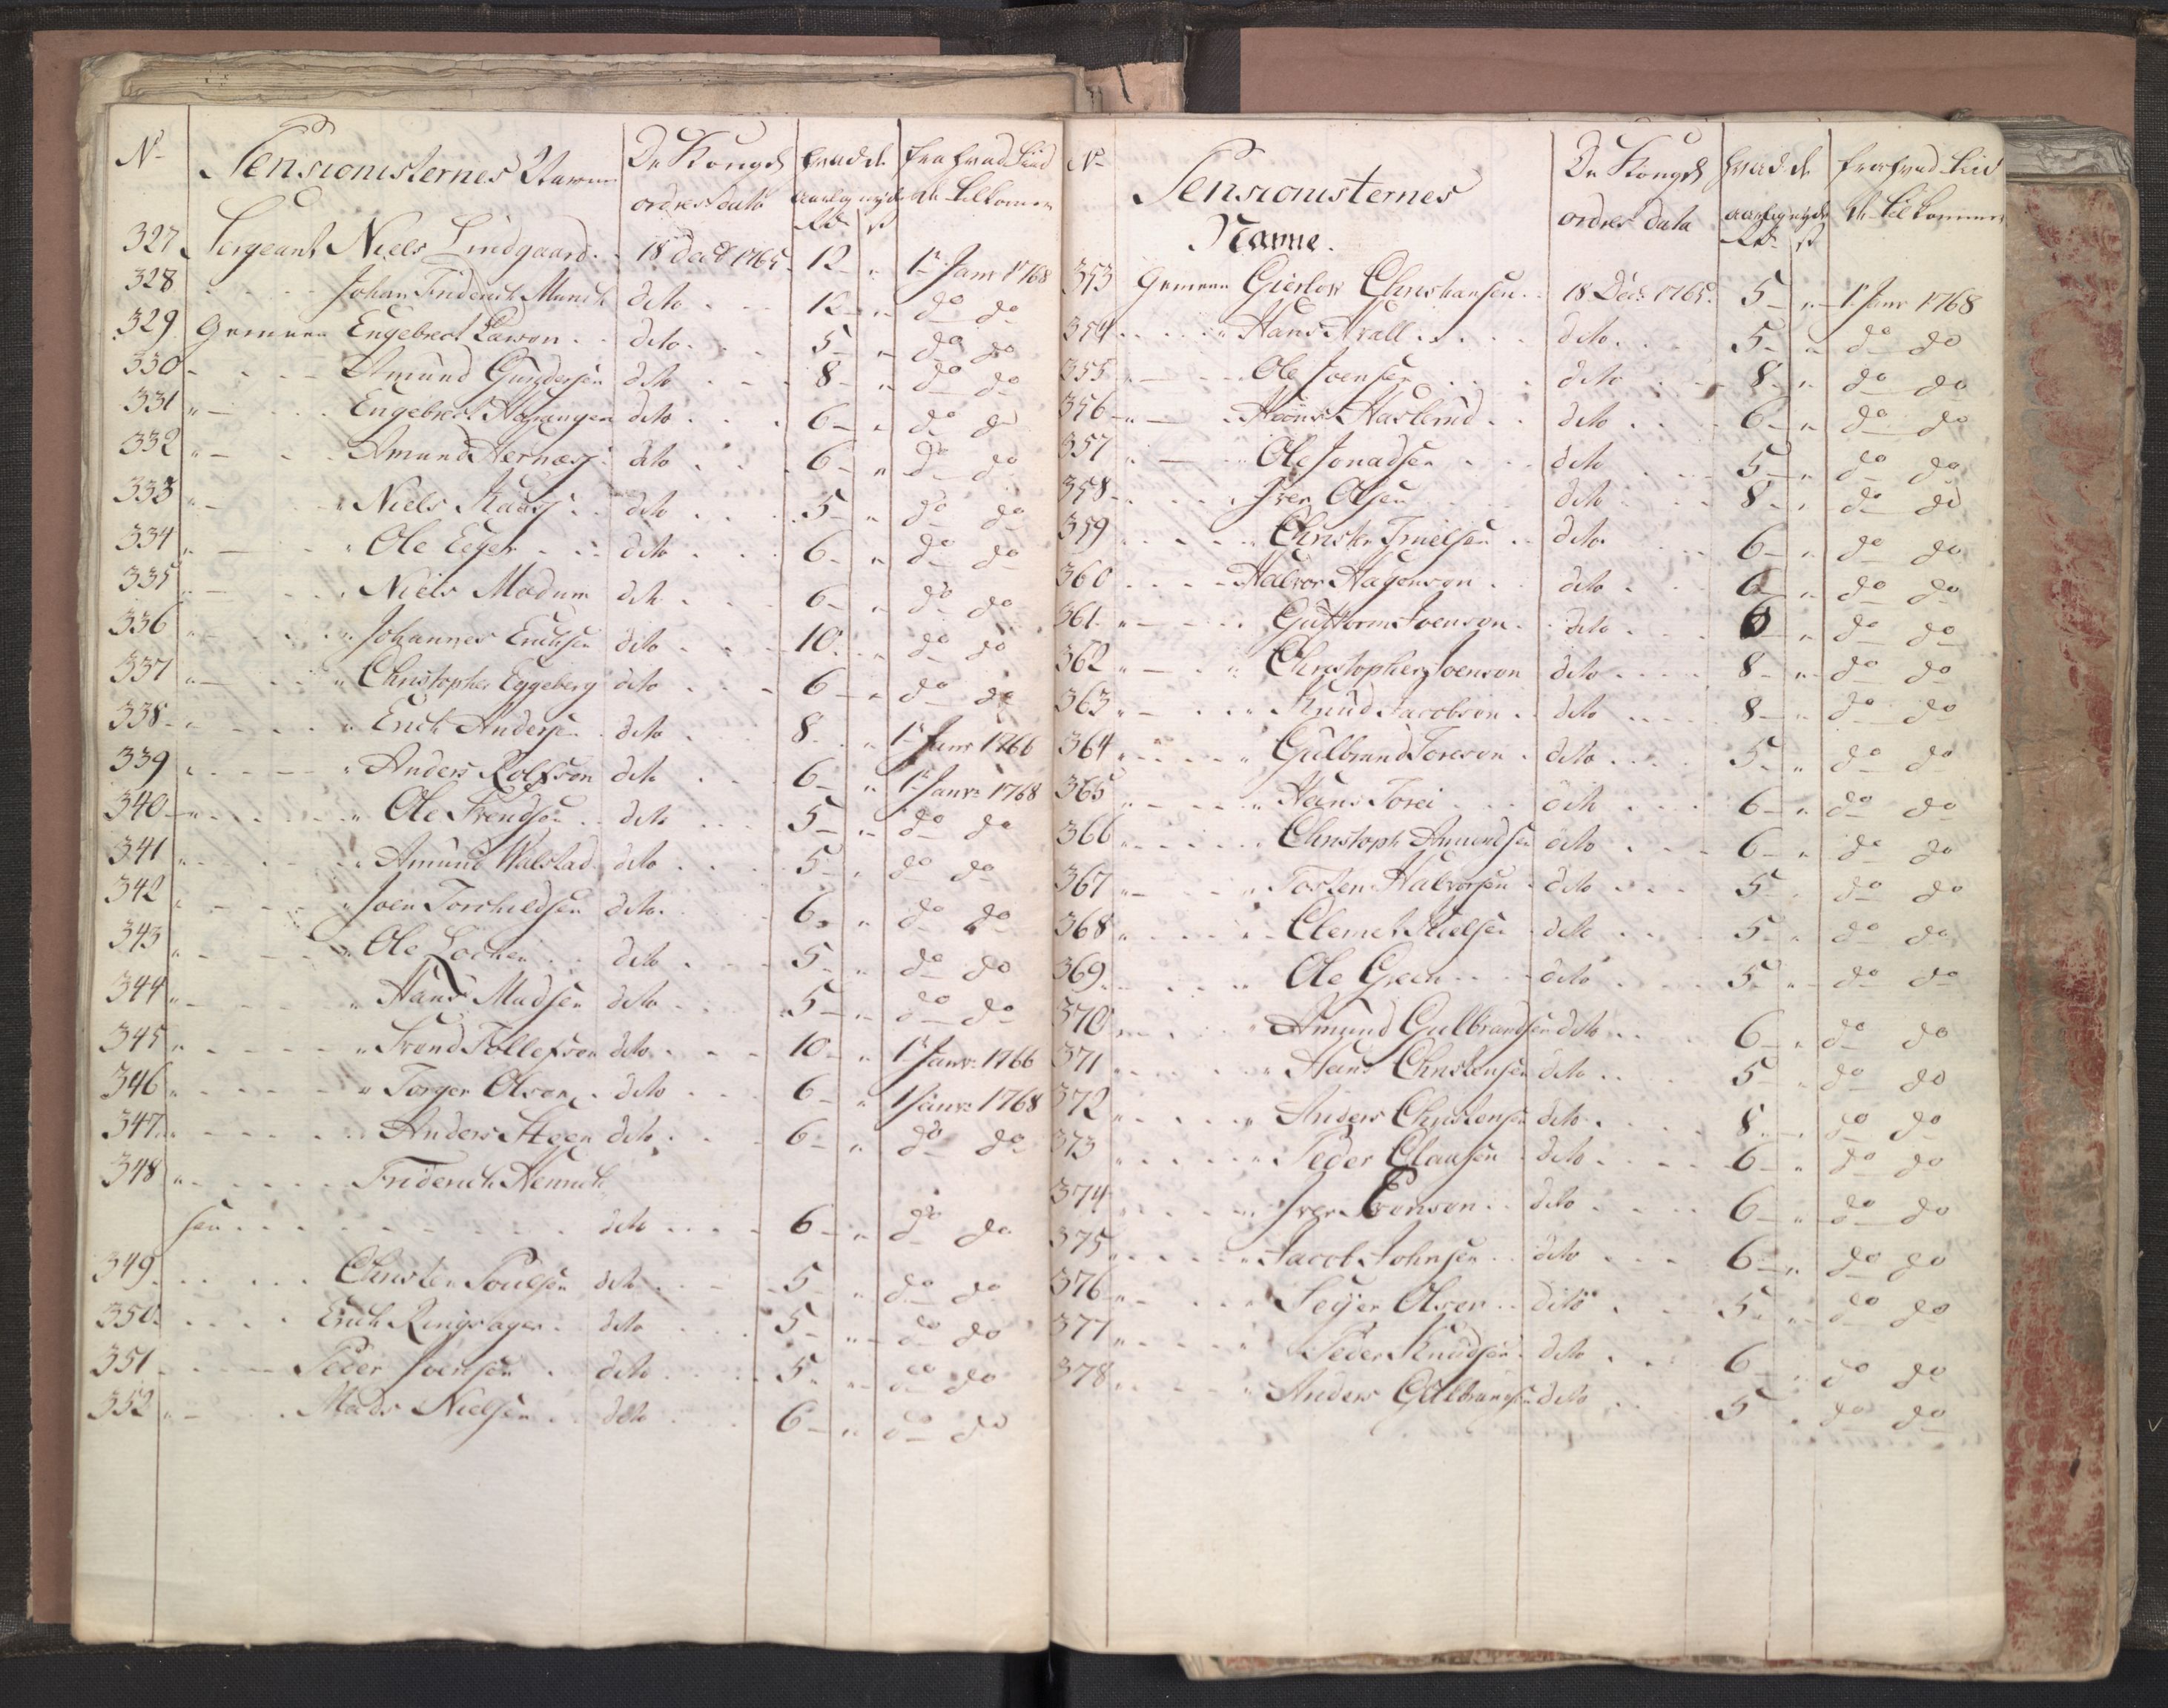 No Pensionisternes Navne De Kongl. ordres data hvad de aarlig nyde Rd. s fra hvad tiid de tilkommer
327 Sergeant Niels Lindgaard 18 Decbr 1765 12 " 1r Janr 1768
328 Johan Friderich Munch dito 12 " do do
329 Gemeen Engebret Larson dito 5 " do do
330 Amund Gundersen dito 8 " do do
331 " Engebret dito 6 " do do
332 " Amund Hernæss dito 6 " do do
333 " Niels Kaas dito 5 " do do
334 " Ole Eeger dito 6 " do do
335 " Niels Modum dito 6 " do do
336 " Johannes Erichsen dito 10 " do do
337 " Christopher Eggeberg dito 6 " do do
338 " Erich Andersen dito 8 " 1r Janr 1766
339 " Anders Rolfson dito 6 " 1r Janr 1768
340 " Ole Trendsen dito 5 " do do
341 " Amund Walstad dito 5 " do do
342 " Joen Torchildsen dito 6 " do do
343 " Ole Locken dito 5 " do do
344 " Hans Madsen dito 5 " do do
345 " Trond Tollefson dito 10 " 1r Janr 1766
346 " Torger Olsen dito 6 " 1 Janr 1768
347 " Anders Steen dito 6 " do do
348 " Friderich Henrich
sen dito 6 " do do
349 Christen Poulsen dito 5 " do do
350 Erich Ringsager dito 5 " do do
351 Peder Joensen dito 5 " do do
352 " Mads Nielsen dito 6 " do do
No Pensionisternes
Navne. De Kongl. ordres data hvad de aarlig nyde Rd. s fra hvad tiid de tilkommer
353 Gemeen Gierlov Christiansen 18 Decr 1765 5 " 1r Janr 1768
354 " Hans Arall dito 5 " do do
355 " Ole Joensen dito 8 " do do
356 " Haslerud dito 6 " do do
357 " Ole Jonadsen dito 5 " do do
358 " Iver Olsen dito 8 " do do
359 " Christen dito 6 " do do
360 Halvor Hagenson dito 6 " do do
361 " Guttorm Joenson dito 6 " do do
362 " Christopher Joenson dito 8 " do do
363 " Knud Jacobson dito 8 " do do
364 " Gulbrand Toreson dito 5 " do do
365 " Hans Torei dito 6 " do do
366 " Christoph Amundsen dito 6 " do do
367 " Tosten Halvorsen dito 5 " do do
368 " Clemet Nielsen dito 5 " do do
369 " Ole Green dito 5 " do do
370 " Amund Gulbrandsen dito 6 " do do
371 " Hans Christensen dito 5 " do do
372 " Anders Christensen dito 8 " do do
373 " Peder Clausen dito 6 " do do
374 " Iver Evenson dito 6 " do do
375 " Jacob Johnsen dito 6 " do do
376 " Sejer Olsen dito 5 " do do
377 " Peder Knudsen dito 6 " do do
378 " Anders Gulbrandsen dito 5 " do do